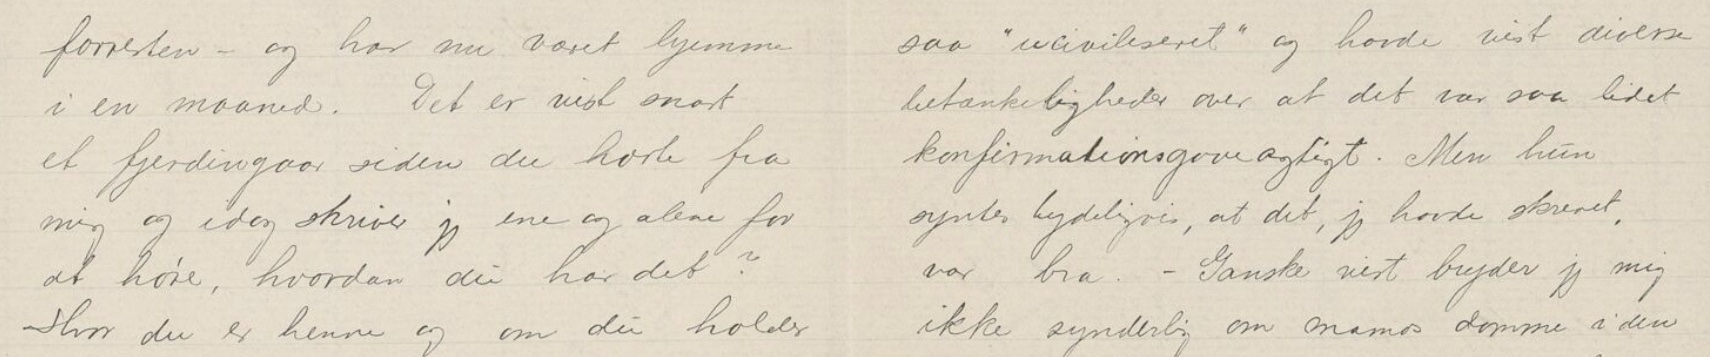 forresten – og har nu været hjemme
i en maaned. Det er vist snart
et fjerdingaar siden du hørte fra
mig og idag skriver jg ene og alene for
at høre, hvordan du har det?
Hvor du er henne og om du holder
saa "uciviliseret" og havde vist diverse
betænkeligheder over at det var saa lidet
konfirmationsgaveagtigt. Men hun
syntes tydeligvis, at det, jg havde skrevet,
var bra. – Ganske vist bryder jg mig
ikke synderlig om mamas domme i den